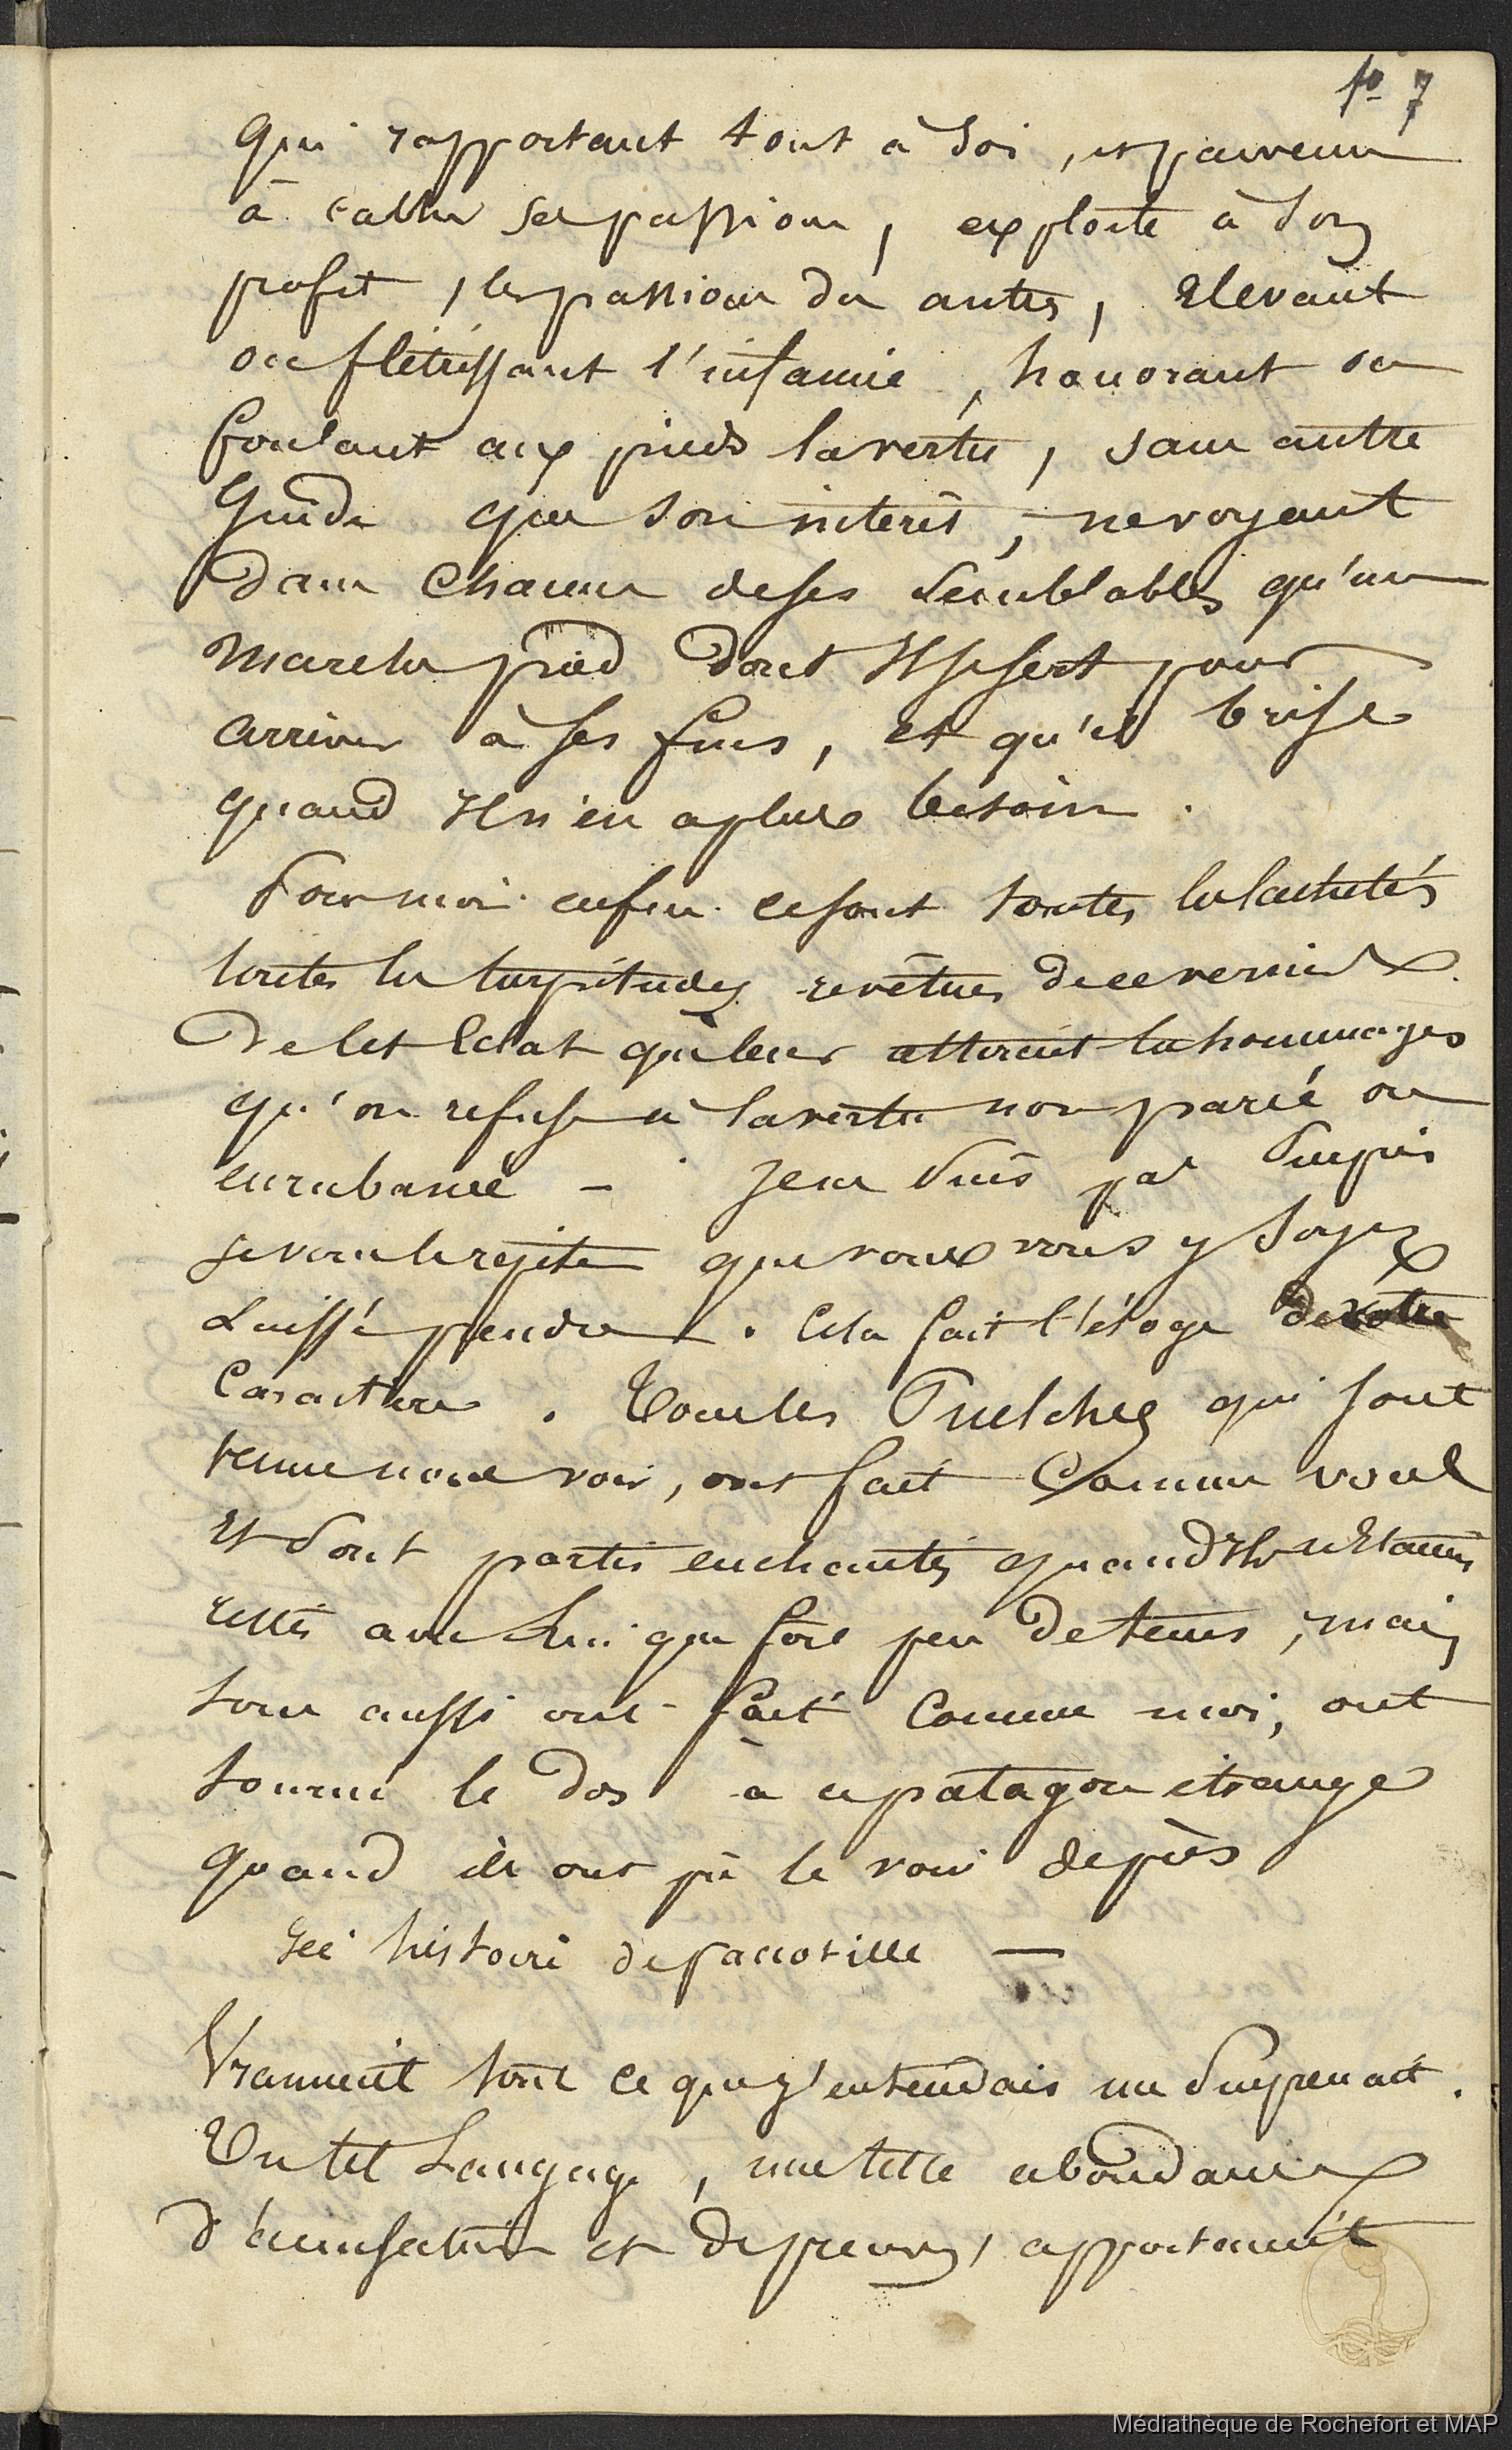 fo 7
qui rapportant tout à soi, et parvenu
à calmer ses passions, exploite à son
profit, les passions des autres, Elevant
ou flétrissant l'infamie, honorant ou
foulant aux pieds la vertu, sans autre
Guide que son intérêt, ne voyant
dans chacun de ses semblables qu'un
marche pied dont Il se sert pour
arriver à ses fins, et qu'il brise
quand Il n'en a plus besoin.
Pour moi enfin ce sont toutes les lachetés
toutes les turpitudes revêtues de ce vernis
De cet Eclat qui leur attirent les hommages
qu'on refuse à la vertu non parée ou
enrubanée – Je ne suis pas surpris
je vous le repète que vous vous y soyez
Laissé prendre. Cela fait l'éloge de votre
Caractère. Tous les Puelches qui sont
venus nous voir, ont fait Comme vous
Et sont partis enchantés quand Ils n'Etaient
restés avec lui que fort peu de tems, mais
tous aussi ont fait Comme moi, ont
tourné le dos à ce patagon étrange
quand ils ont pû le voir de près
Ici histoire de pacotille —
Vraiment tout ce que j'entendais me surprenait.
Un tel Langage, une telle abondance
d'accusations et de preuves, apportaient
Médiathèque de Rochefort et MAP